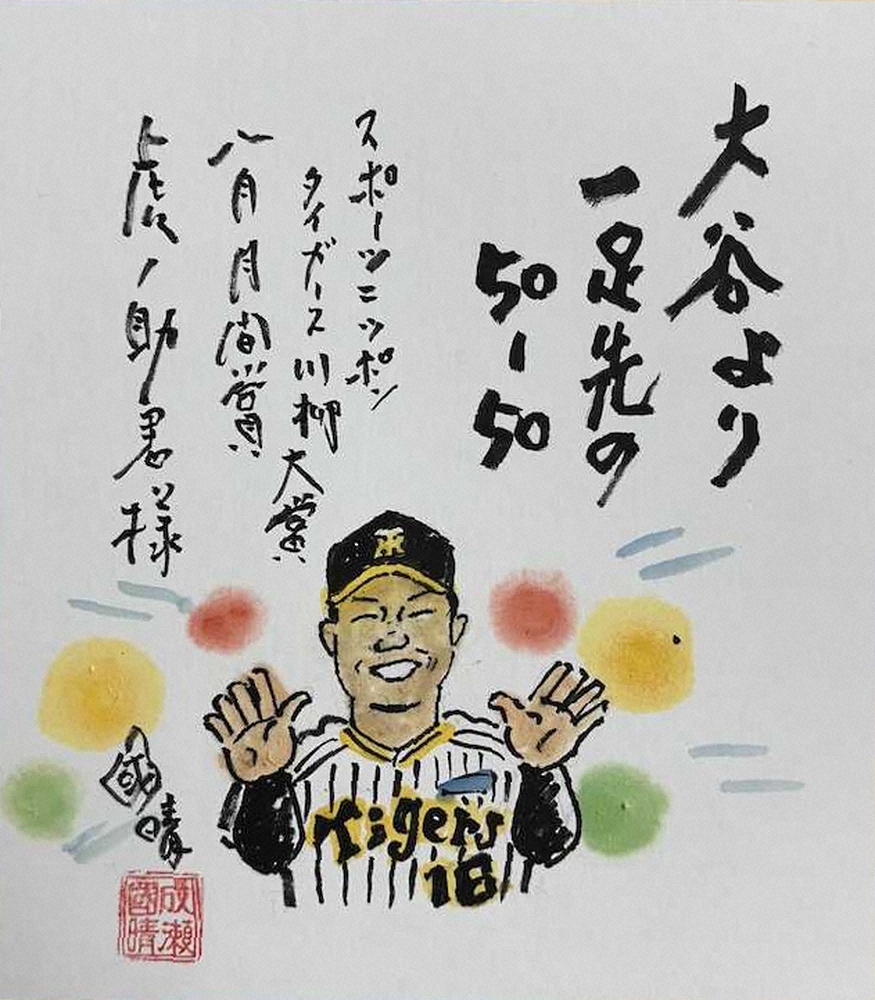 大谷より
一足先の
50-50
スポーツニッポン
タイガース川柳大賞
八月月間賞
虎ノ助君様
Tigers
18
國晴
成瀬
國晴